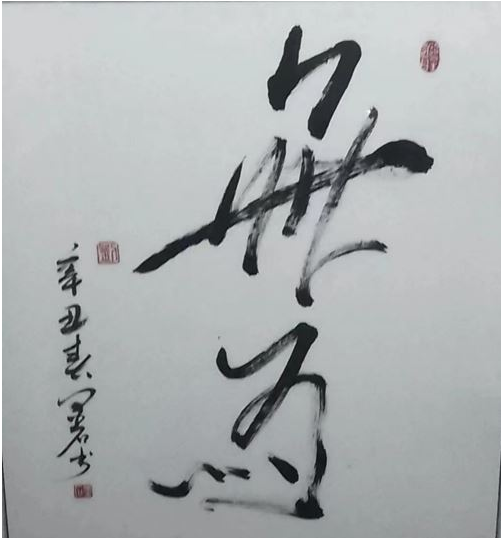 無為
辛丑春书